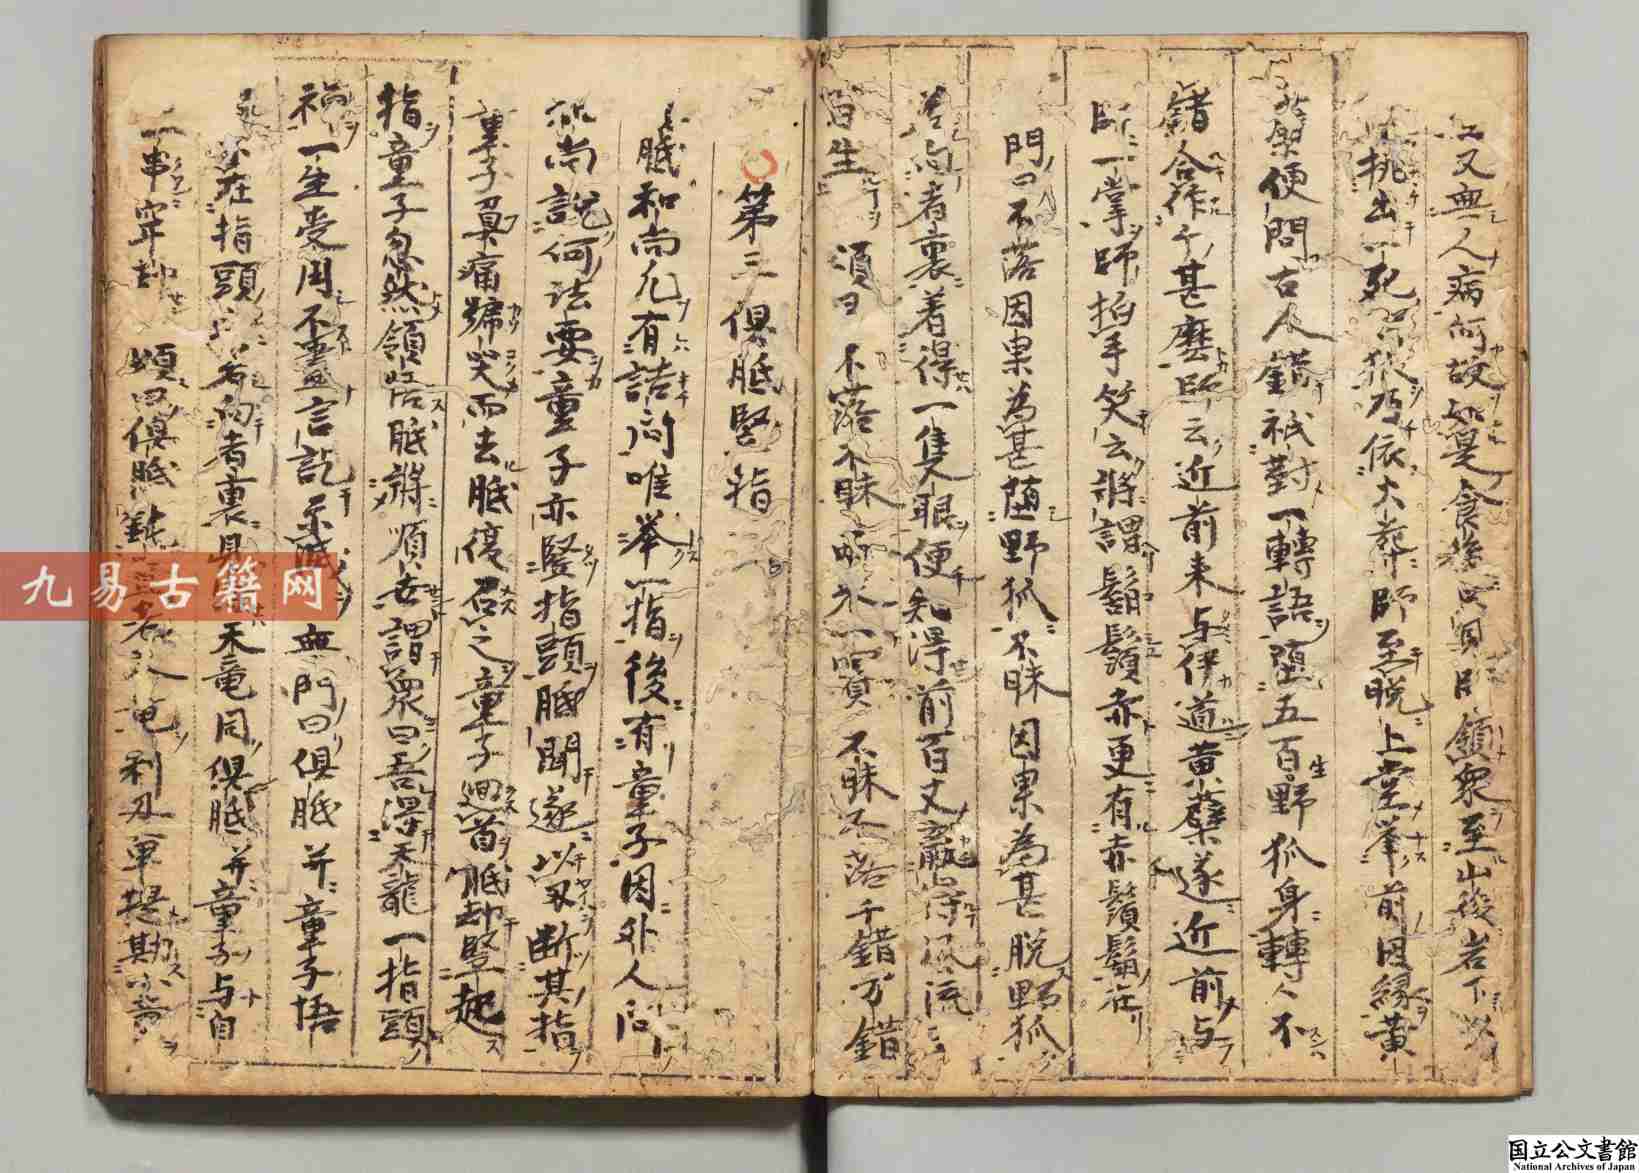 又無人病何故如是食後只見師領衆至山後岩下以
挑出一死野狐乃依火葬師至晚上堂挙前因縁黄
蘗便問古人錯祇對一轉語堕五百生野狐身轉々不
錯合作ケ甚麽師云近前来与伊道黄蘗遂近前与
師一掌師拍手笑云将謂鬍鬚赤更有赤鬚鬍在
門曰不落因果為甚堕野狐不昧因果為甚脱野狐
若向者裏着得一隻眼便知得前百丈贏得風流
百生 頌曰 不落不昧 両采一賽 不昧不落千錯万錯
第三倶胝竪指
胝和尚凡有詰問唯挙一指後有童子因外人問
和尚説何法要童子亦竪指頭胝聞遂以刃断其指
童子負痛號哭而去胝復召之童子廻首胝却竪起
指童子忽然領悟胝將順世謂衆曰吾得天龍一指頭
禅一生受用不盡言訖示滅 無門曰倶胝并童子悟
處不在指頭上若向者裏見得天竜同倶胝并童子与自
一串穿却 頌曰倶胝鈍置老天竜利刃單提勘小童
九易古籍网
国立公文書館
National Archives of Japan